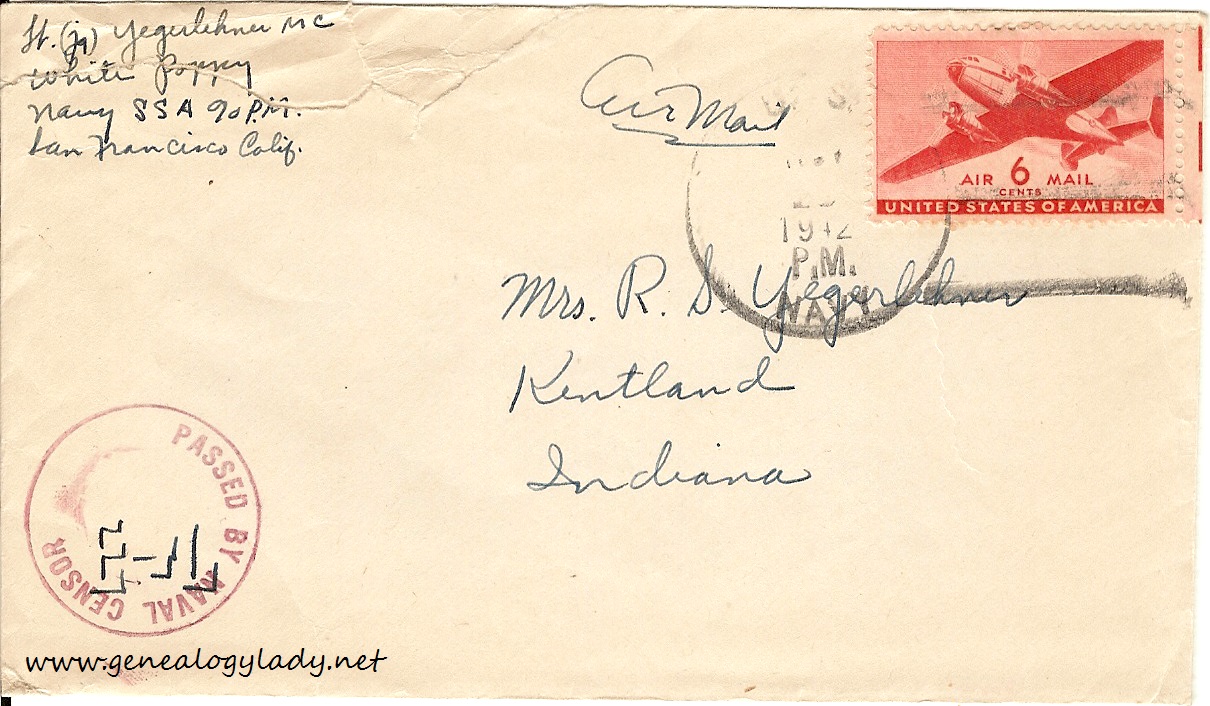 Lt. (jg) Yegerlehner MC
White Poppy
Navy SSA 90 P.M.
San Francisco Calif.
Air Mail
AIR 6 MAIL
CENTS
UNITED STATES OF AMERICA
1942
P.M.
NAVY
Mrs. R. D. Yegerlehner
Kentland
Indiana
PASSED BY NAVAL CENSOR
www.genealogylady.net